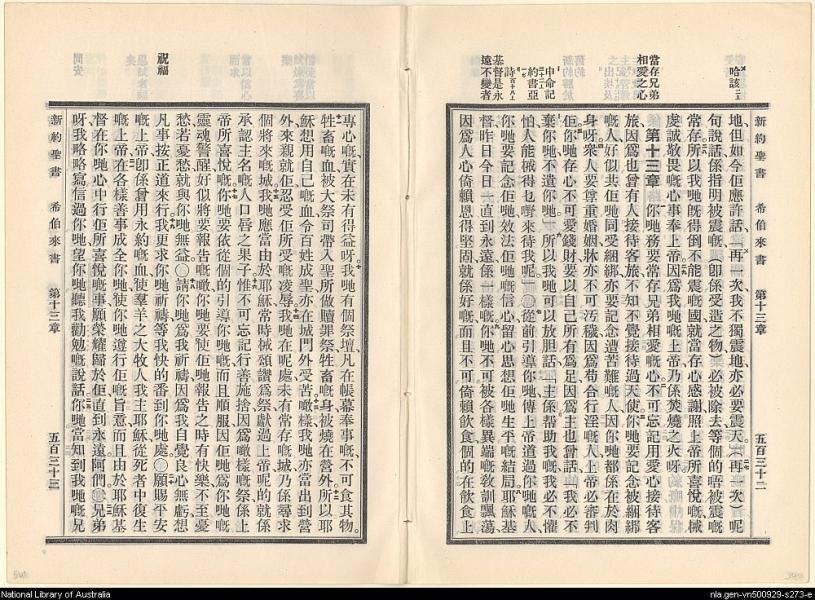 新約聖書　希伯來書　第十三章　五百三十二
哈該二
地但如今佢應許話、再一次我不獨震地、亦必要震天、（再一次）呢
句說話係指明被震嘅、（卽係受造之物）必被除去、等個的唔被震嘅
常存、所以我哋旣得倒不能震嘅國、就當存心感謝、照上帝所喜悅嘅、械
虔誠敬畏嘅心事奉上帝、因爲我哋嘅上帝乃係焚燒之火呀、
當存兄弟
相愛之心
第十三章　你哋務要常存兄弟相愛嘅心、不可忘記用愛心接待客
旅、因爲也曾有人接待客旅、不知不覺接待過天使、你哋要記念被綑綁
嘅人、好似共佢哋同受綑綁、亦要記念遭苦難嘅人、因你哋都係在於肉
身呀、衆人要尊重婚姻、牀亦不可汚穢、因爲苟合行淫嘅人、上帝必審判
佢、你哋存心不可愛錢財、要以自己所有爲足、因爲主也曾話、我必不
申命記
約書亞
詩
棄你哋、不遺你哋、所以我哋可以放胆話、主係帮助我嘅、我必不懼
怕、人能械得乜嘢來待我呢、○從前引導你哋、傳上帝道過你哋嘅人、
基督是永
遠不變者
你哋要記念佢哋、效法佢哋嘅信心、留心思想佢哋生平嘅結局、耶穌基
督昨日今日一直到永遠係一樣嘅、你哋不可被各樣異端嘅敎訓飄蕩、
因爲人心倚賴恩得堅固就係好嘅、而且不可倚賴飲食、個的在飲食上
專心嘅、實在未有得益呀、我哋有個祭壇、凡在帳幕奉事嘅、不可食其物。
牲畜嘅血、被大祭司帶入聖所做贖罪祭、牲畜嘅身、被燒在營外、所以耶
穌想用自己嘅血、令百姓成聖、亦在城門外受苦、噉樣我哋亦當出到營
外來親就佢、忍受佢所受嘅凌辱、我哋在呢處未有常存嘅城、乃係尋求
個將來嘅城、我哋應當由於耶穌、常時械頌讚爲祭獻過上帝、呢的就係
承認主名嘅人口唇之果子、惟不可忘記行善施捨、因爲噉樣嘅祭、係上
帝所喜悅嘅、你哋要依從個的引導你哋嘅、而且順服、因佢哋爲你哋
靈魂警醒、好似將要報告嘅噉、你哋要使佢哋報告之時、有快樂、不至憂
愁、若憂愁就與你哋無益、○請你哋爲我祈禱、因爲我自覺良心無虧、想
祝福
凡事按正道來行、我更求你哋祈禱、等我快的番到你哋處、○願賜平安
嘅上帝、卽係曾用永約嘅血、使羣羊之大牧人我主耶穌、從死者中復生
嘅上帝、在各樣善事成全你哋、使你哋遵行佢嘅旨意、而且由於耶穌基
督、在你哋心中行佢所喜悅嘅事、願榮耀歸於佢、直到永遠、阿們、○兄弟
呀、我略略寫信過你哋、望你哋聽我勸勉嘅說話、你哋當知到我哋嘅兄
新約聖書　希伯來書　第十三章　五百三十三
National Library of Australia
nla.gen-vn500929-s273-e